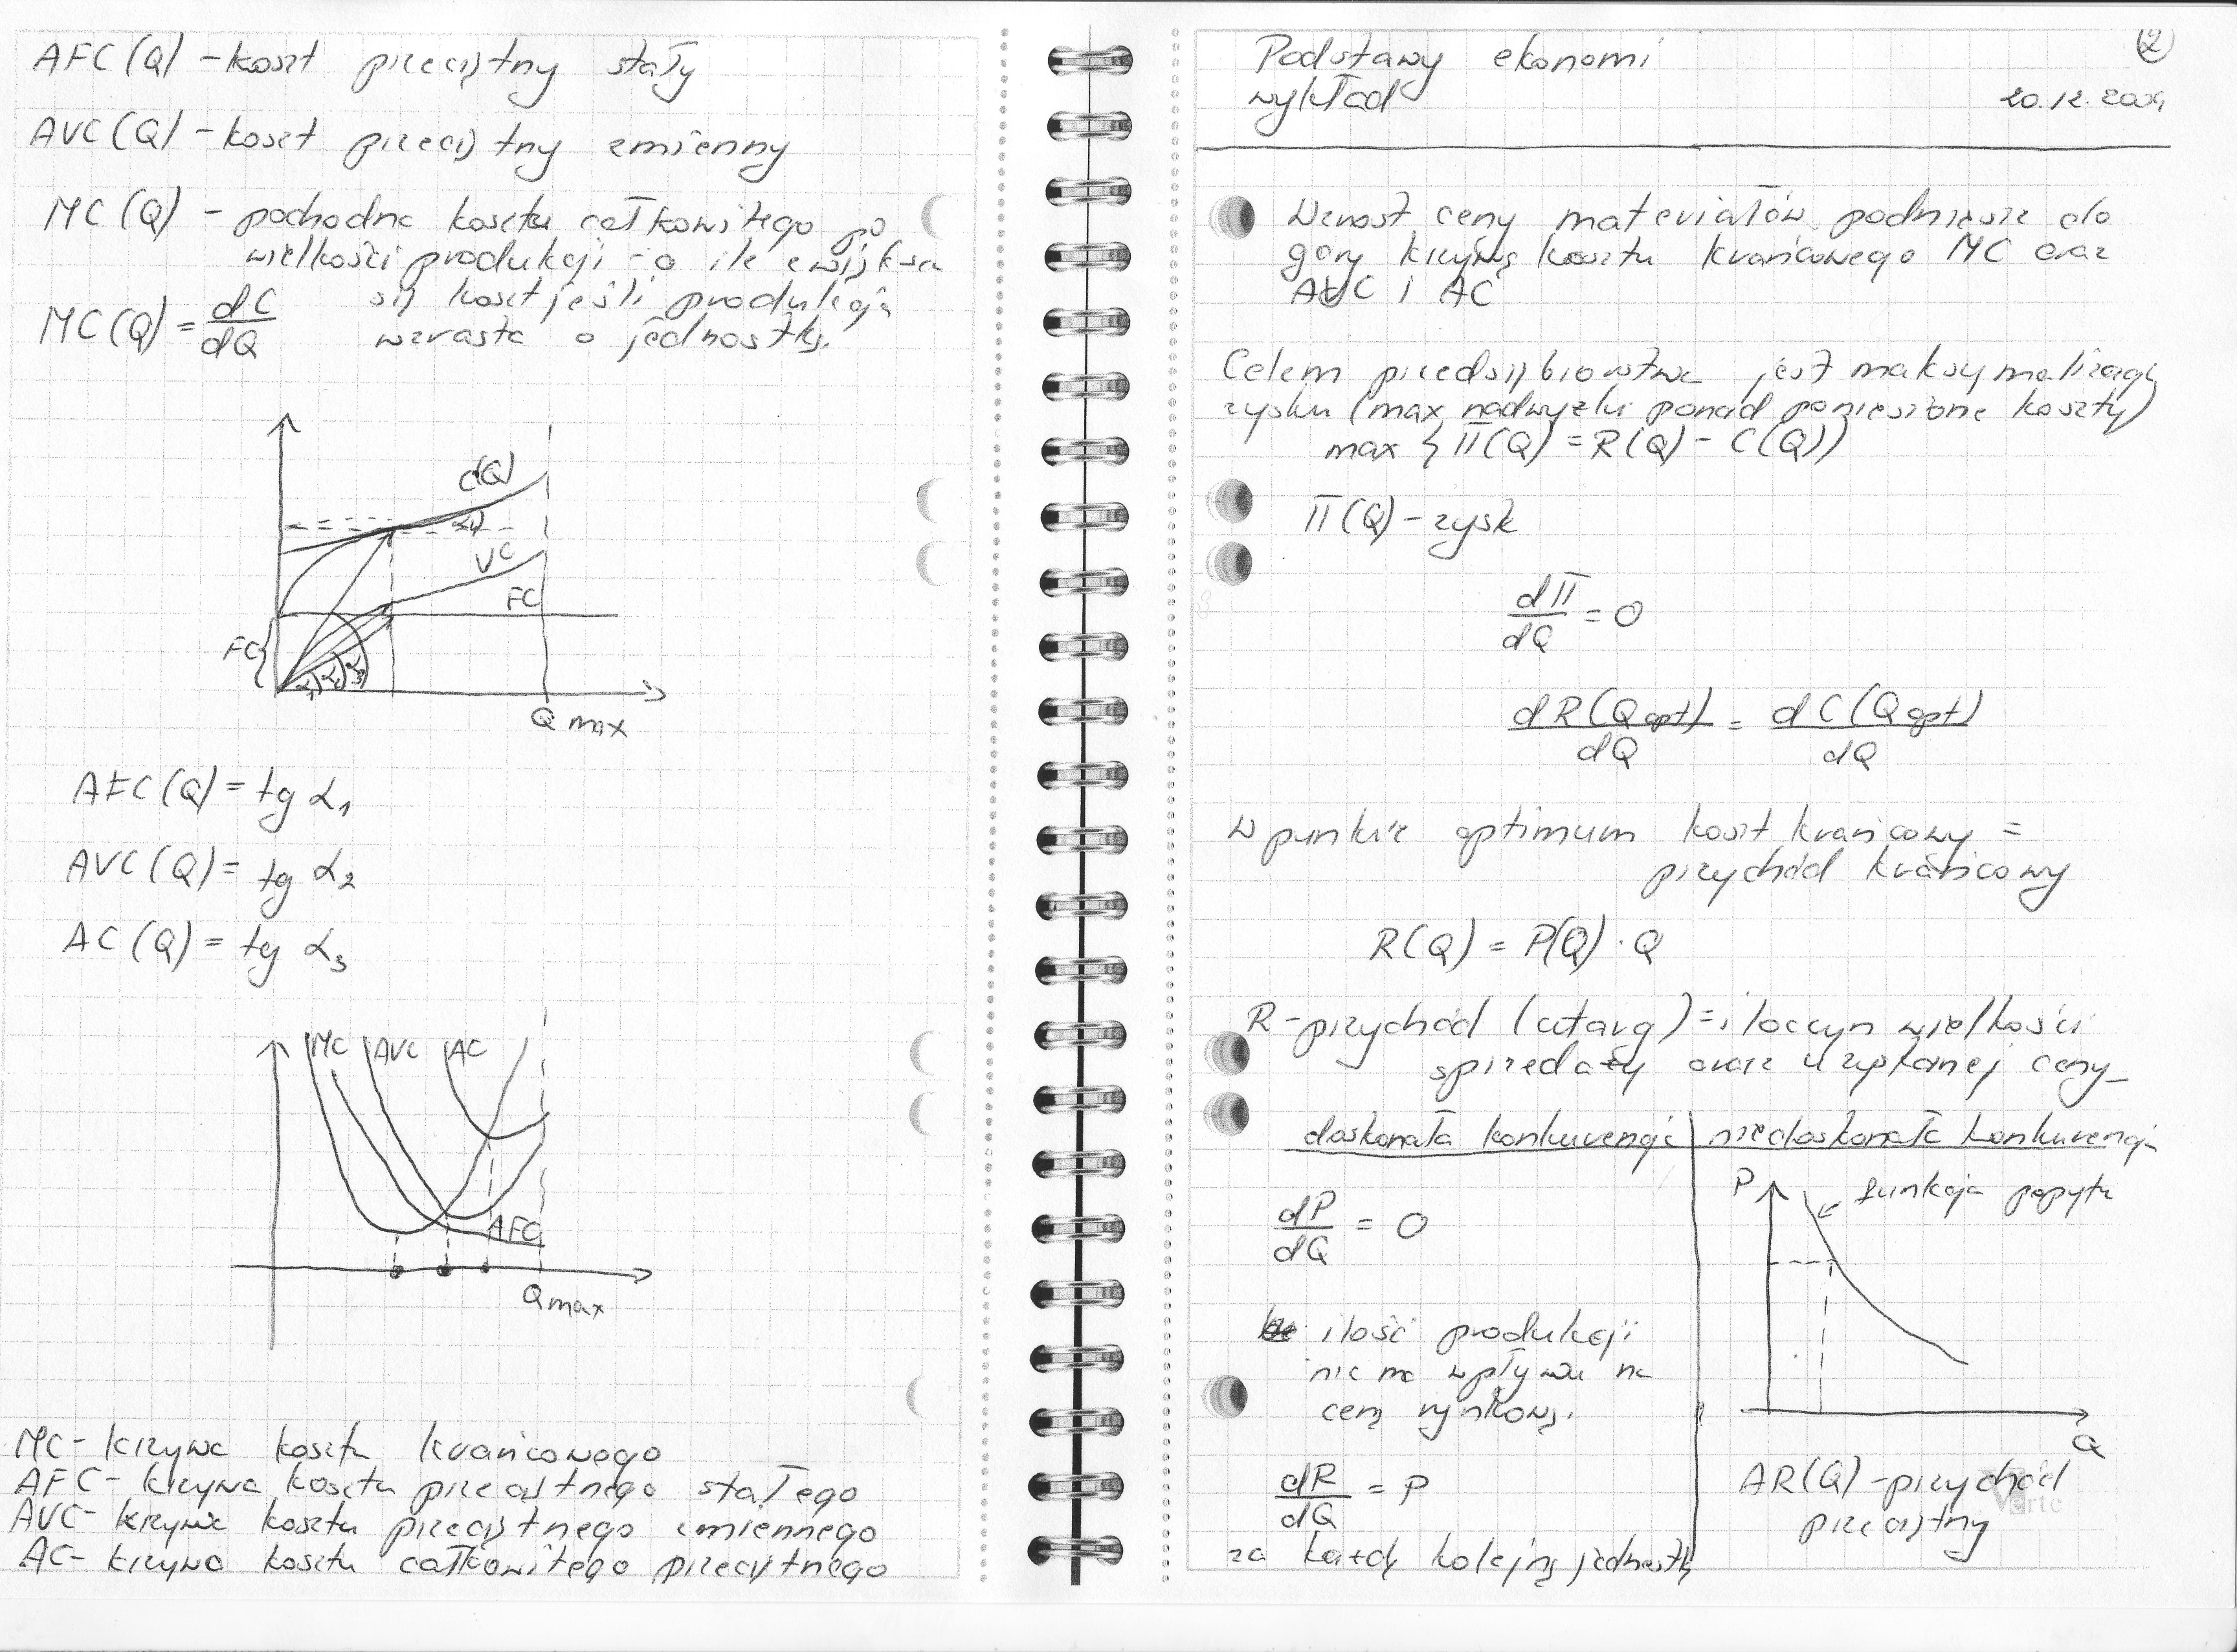 AFC(Q) - koszt przeciętny stały
AVC(Q) - koszt przeciętny zmienny
MC(Q) - pochodna kosztu całkowitego po
wielkości produkcji - o ile zwiększa
się koszt jeśli produkcja
wzrasta o jednostkę.
MC(Q) = dC/dQ
C(Q)
VC
FC
FC
Q max
AFC(Q) = tg α₁
AVC(Q) = tg α₂
AC(Q) = tg α₃
MC AVC AC
AFC
Qmax
MC - krzywa kosztu krańcowego
AFC - krzywa kosztu przeciętnego stałego
AVC - krzywa kosztu przeciętnego zmiennego
AC - krzywa kosztu całkowitego przeciętnego
2
Podstawy ekonomi
wykład
20.12.2009
Wzrost ceny materiałów podniesie do
góry krzywą kosztu krańcowego MC oraz
AVC i AC
Celem przedsiębiorstwa jest maksymalizacja
zysku (max nadwyżki ponad poniesione koszty)
max {Π(Q) = R(Q) - C(Q)}
Π(Q) - zysk
dΠ/dQ = 0
dR(Qopt)/dQ = dC(Qopt)/dQ
W punkcie optimum koszt krańcowy =
przychód krańcowy
R(Q) = P(Q) · Q
R - przychód (utarg) = iloczyn wielkości
sprzedaży oraz uzyskanej ceny
doskonała konkurencja
dP/dQ = 0
ilość produkcji
nie ma wpływu na
cenę rynkową.
dR/dQ = P
za każdą kolejną jednostkę
niedoskonała konkurencja
P
funkcja popytu
Q
AR(Q) - przychód
przeciętny